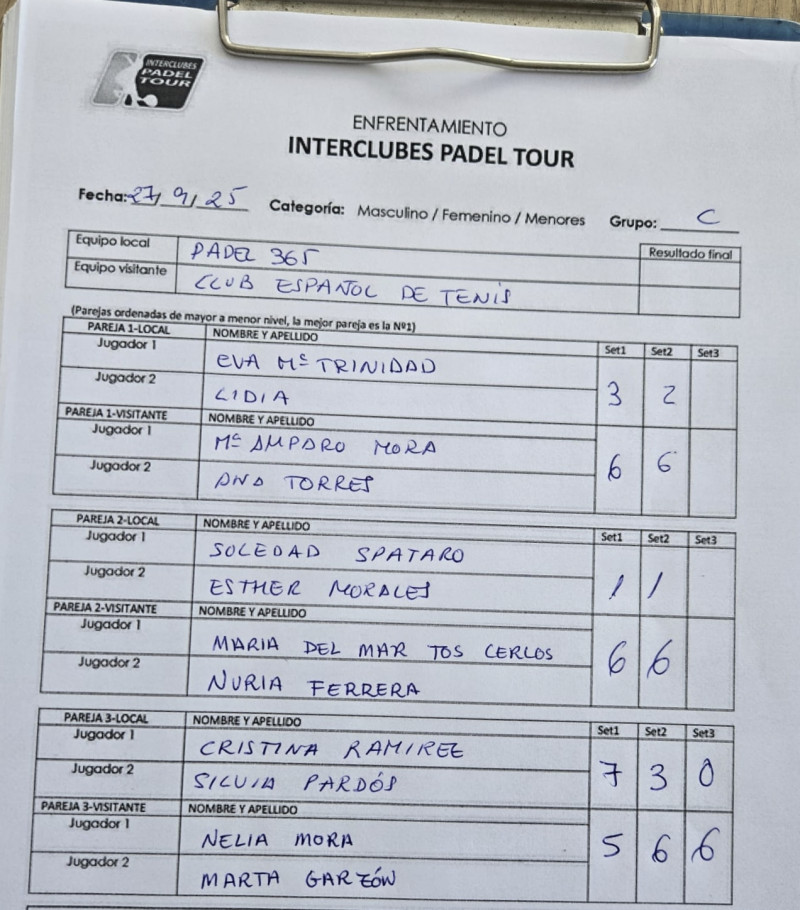 INTERCLUBES
PADEL
TOUR
ENFRENTAMIENTO
INTERCLUBES PADEL TOUR
Fecha: 27/9/25 Categoría: Masculino / Femenino / Menores Grupo: C
Equipo local PADEL 365 Resultado final
Equipo visitante CLUB ESPAÑOL DE TENIS
(Parejas ordenadas de mayor a menor nivel, la mejor pareja es la Nº1)
PAREJA 1-LOCAL NOMBRE Y APELLIDO Set1 Set2 Set3
Jugador 1 EVA Mª TRINIDAD
Jugador 2 LIDIA 3 2
PAREJA 1-VISITANTE NOMBRE Y APELLIDO
Jugador 1 Mª AMPARO MORA
Jugador 2 ANA TORRES 6 6
PAREJA 2-LOCAL NOMBRE Y APELLIDO Set1 Set2 Set3
Jugador 1 SOLEDAD SPATARO
Jugador 2 ESTHER MORALES 1 1
PAREJA 2-VISITANTE NOMBRE Y APELLIDO
Jugador 1 MARIA DEL MAR TOS CERLOS
Jugador 2 NURIA FERRERA 6 6
PAREJA 3-LOCAL NOMBRE Y APELLIDO Set1 Set2 Set3
Jugador 1 CRISTINA RAMIREZ
Jugador 2 SILVIA PARDÓS 7 3 0
PAREJA 3-VISITANTE NOMBRE Y APELLIDO
Jugador 1 NELIA MORA
Jugador 2 MARTA GARZÓN 5 6 6